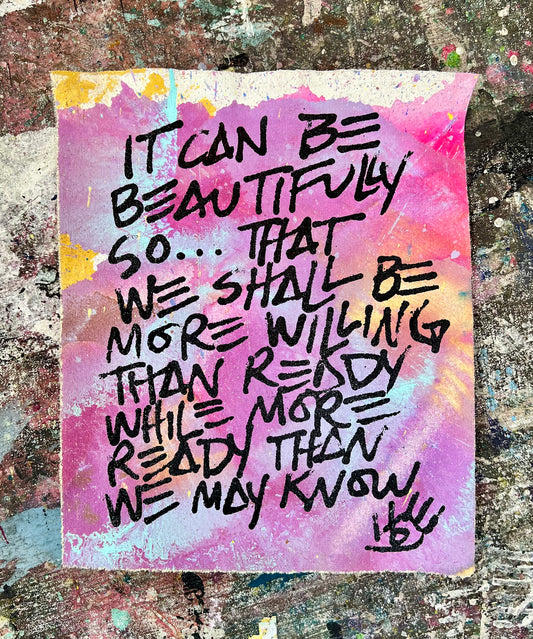 IT CAN BE
BEAUTIFULLY
SO... THAT
WE SHALL BE
MORE WILLING
THAN READY
WHILE MORE
READY THAN
WE MAY KNOW